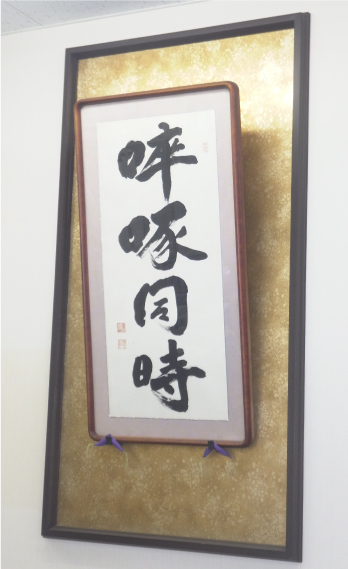 啐啄同時